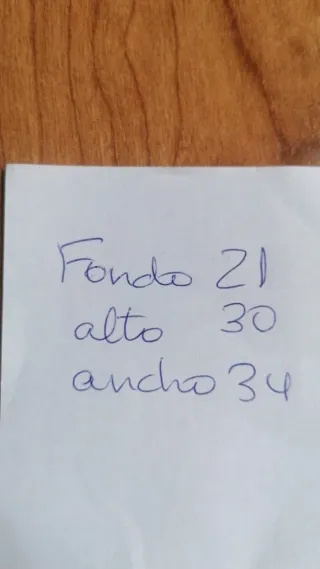 Fondo 21
alto 30
ancho 34